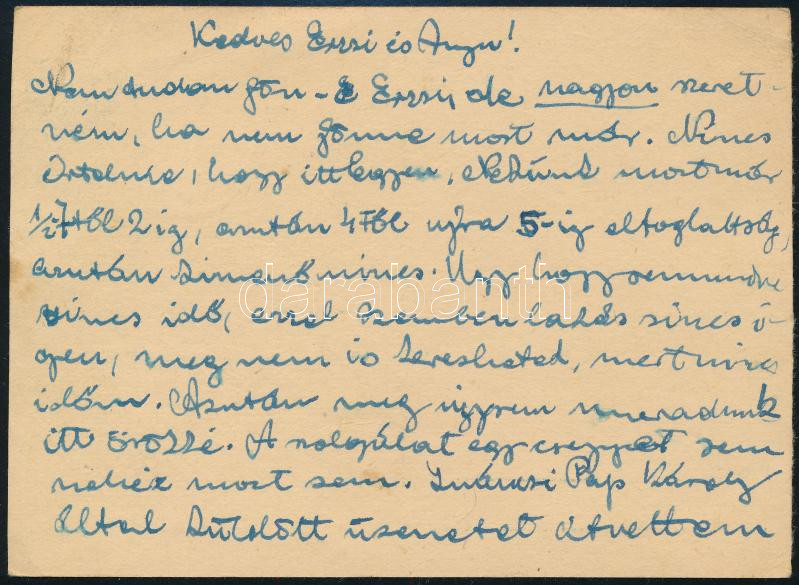 Kedves Erzsi és Anyu!
Nem tudom jön-e Erzsi, de nagyon szeret-
ném, ha nem jönne most már. Nincs
értelme, hogy itt legyen, Nekünk most már
1/2 7-től 2 ig, azután 4 től ujra 5-ig elfoglaltság,
azután kimenő nincs. Ugy hogy semmire
sincs idő, ezzel szemben lakás sincs é-
pen, meg nem is keresheted, mert nincs
időm. Azután meg úgysem maradunk
itt örökké. A szolgálat egy cseppet sem
nehéz most sem. Pap Károly
által küldött üzenetet átvettem
darabanth